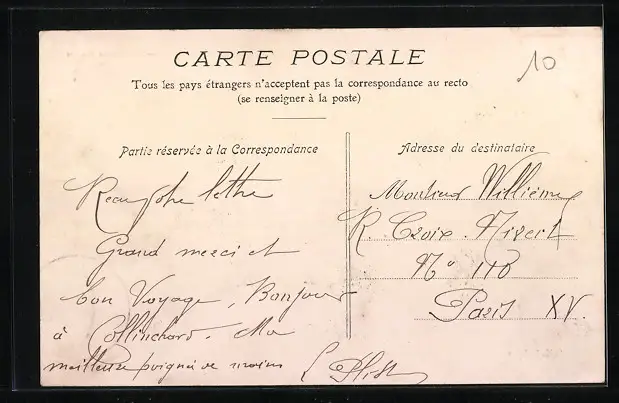 10
CARTE POSTALE
Tous les pays étrangers n'acceptent pas la correspondance au recto
(se renseigner à la poste)
Partie réservée à la Correspondance
Reçu votre lettre
Grand merci et
bon Voyage, Bonjour
à Ma
meilleure poignée de mains
Adresse du destinataire
Monsieur Willième
R. Croix. Nivert
N° 118
Paris XV.